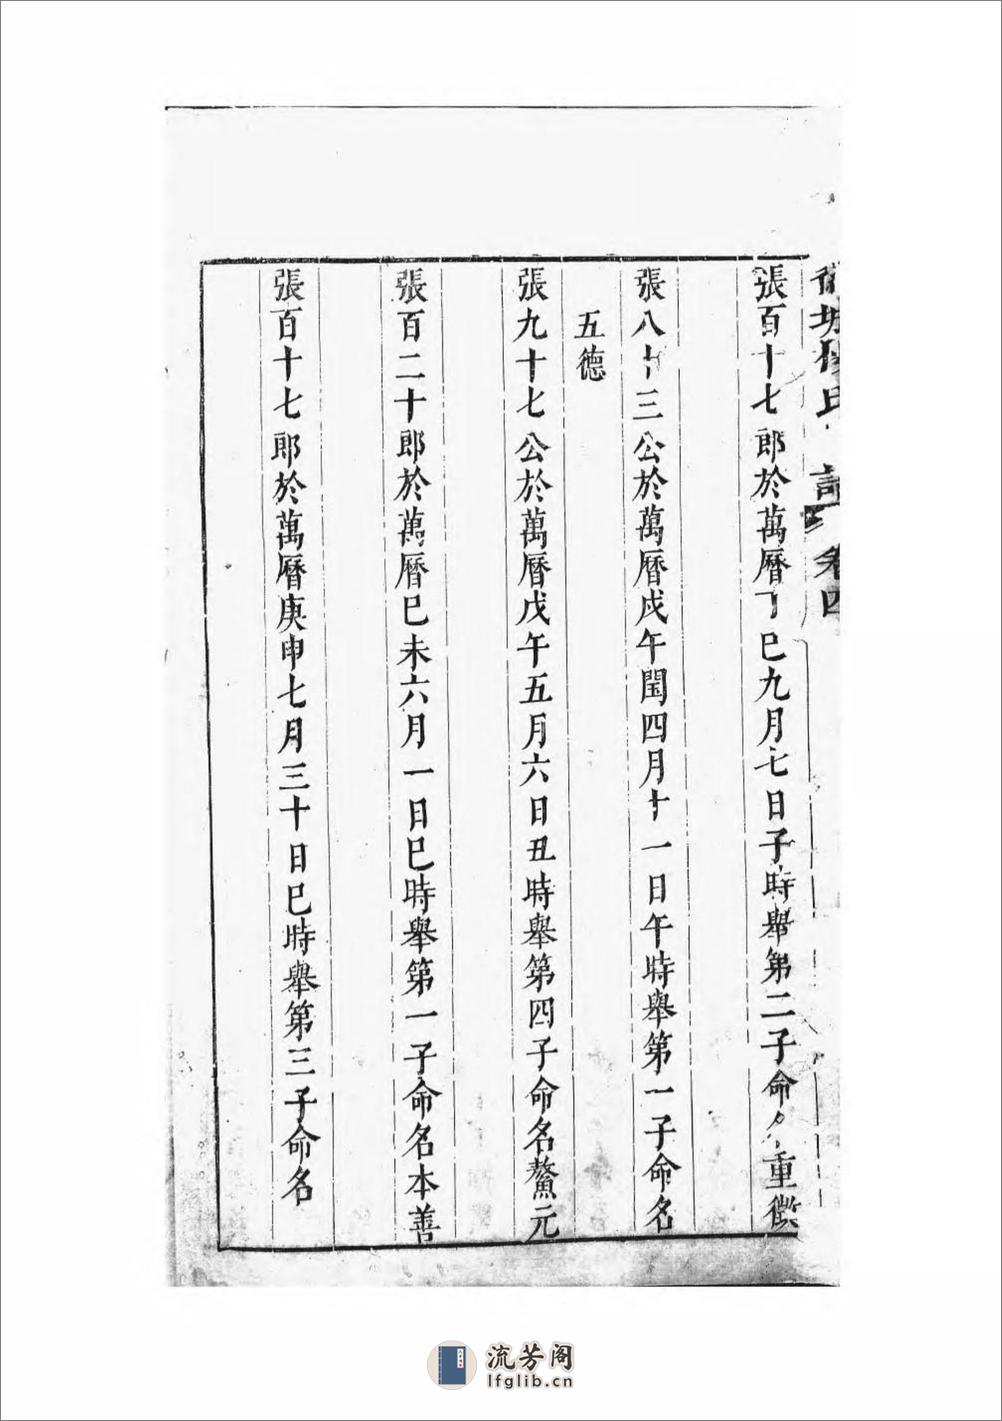 張百十七郎於萬曆丁巳九月七日子時舉第二子命名重徵
張八十三公於萬曆戊午閏四月十一日午時舉第一子命名
五德
張九十七公於萬曆戊午五月六日丑時舉第四子命名鰲元
張百二十郎於萬曆巳未六月一日巳時舉第一子命名本善
張百十七郎於萬曆庚申七月三十日巳時舉第三子命名
卷四
流芳阁
lfglib.cn